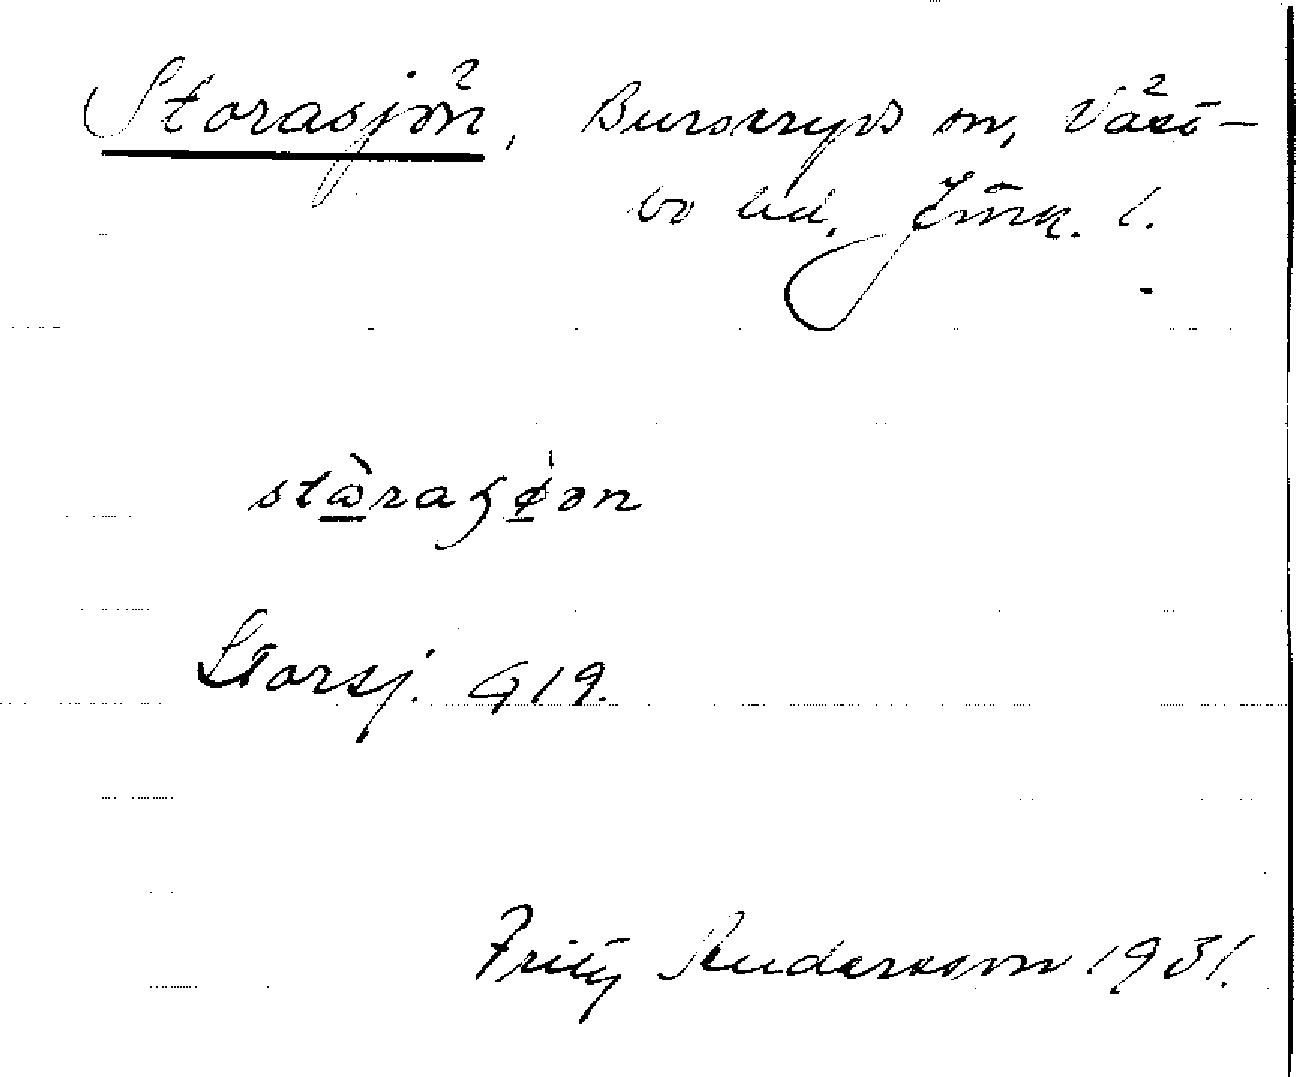 Storasjön, Burseryds sn, Västbo hd, Jönk. l.
Storsj. G 19.
Fritz Andersson 1931.